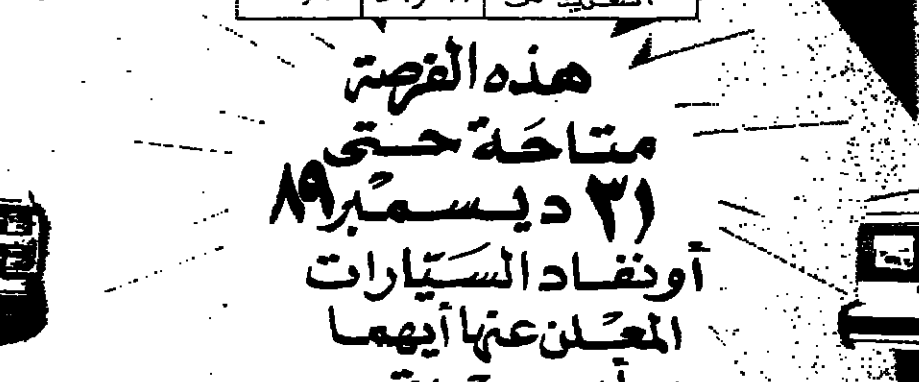 هذه الفرصة
متاحة حتى
٣١ ديسمبر ٨٩
أو نفاد السيارات
المعلن عنها أيهما